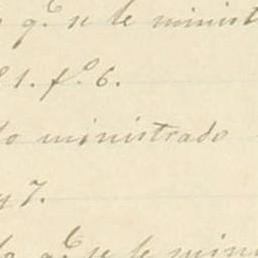 q.e se le minist
º 1. fº 6.
do ministrado
y 7.
do q.e se le mini